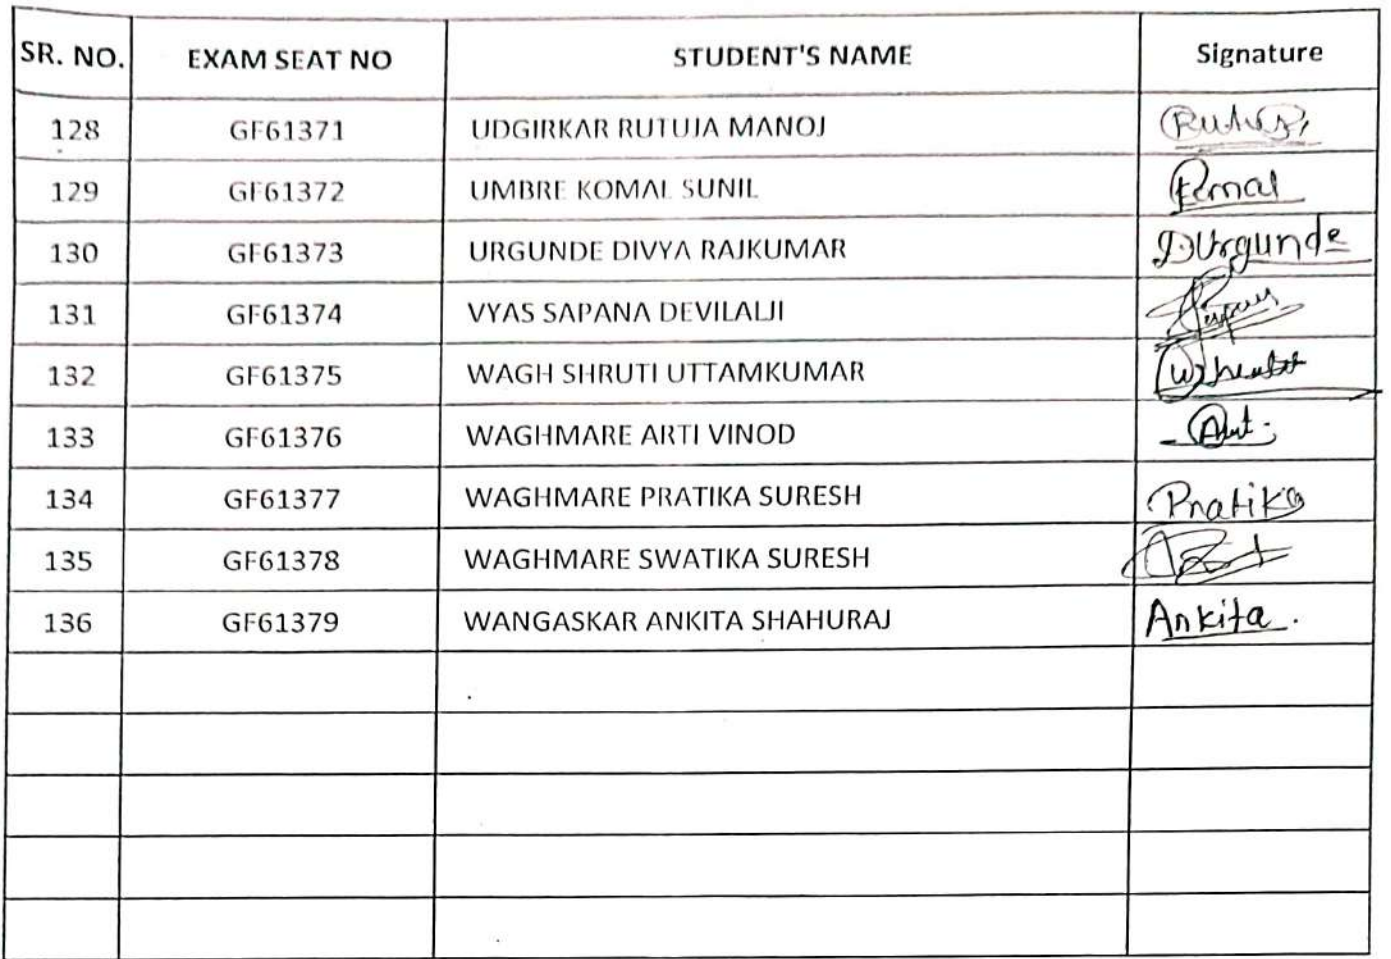 SR. NO. EXAM SEAT NO STUDENT'S NAME Signature
128 GF61371 UDGIRKAR RUTUJA MANOJ
129 GF61372 UMBRE KOMAL SUNIL Komal
130 GF61373 URGUNDE DIVYA RAJKUMAR DUrgunde
131 GF61374 VYAS SAPANA DEVILALJI
132 GF61375 WAGH SHRUTI UTTAMKUMAR
133 GF61376 WAGHMARE ARTI VINOD
134 GF61377 WAGHMARE PRATIKA SURESH Pratika
135 GF61378 WAGHMARE SWATIKA SURESH
136 GF61379 WANGASKAR ANKITA SHAHURAJ Ankita.